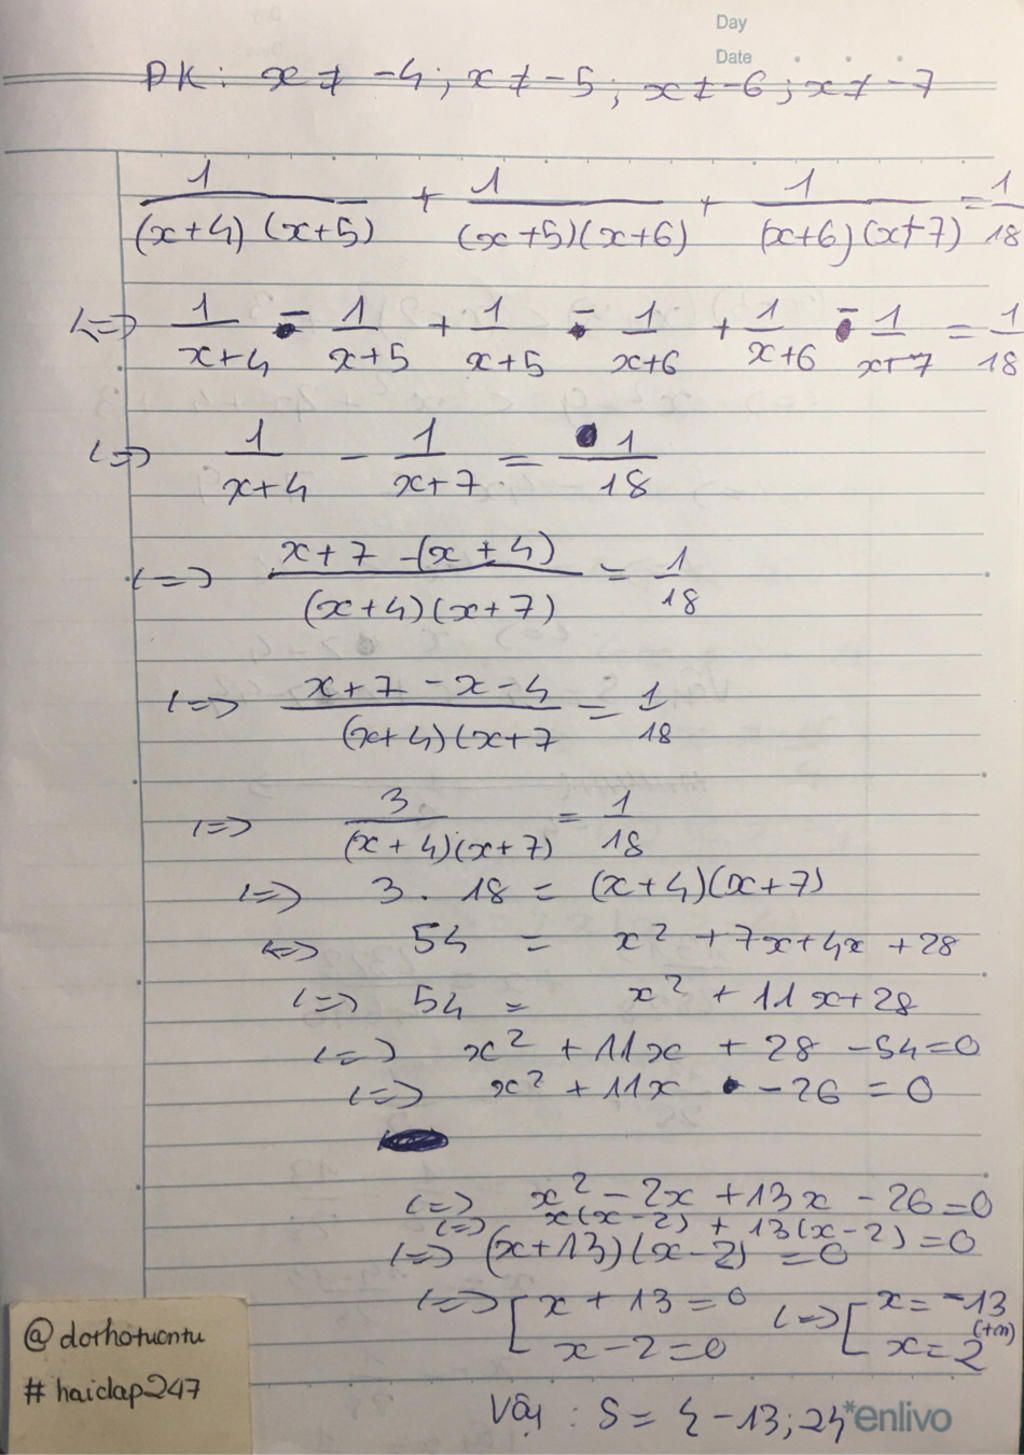 Day
Date
ĐK: x ≠ -4; x ≠ -5; x ≠ -6; x ≠ -7
1/((x+4)(x+5)) + 1/((x+5)(x+6)) + 1/((x+6)(x+7)) = 1/18
<=> 1/(x+4) - 1/(x+5) + 1/(x+5) - 1/(x+6) + 1/(x+6) - 1/(x+7) = 1/18
<=> 1/(x+4) - 1/(x+7) = 1/18
<=> (x+7-(x+4))/((x+4)(x+7)) = 1/18
<=> (x+7-x-4)/((x+4)(x+7) = 1/18
<=> 3/((x+4)(x+7)) = 1/18
<=> 3. 18 = (x+4)(x+7)
<=> 54 = x² + 7x+4x + 28
<=> 54 = x² + 11x+28
<=> x² + 11x + 28 - 54=0
<=> x² + 11x - 26 = 0
<=> x² - 2x + 13x - 26=0
<=> x(x-2) + 13(x-2) = 0
<=> (x+13)(x-2) = 0
<=> [ x + 13 = 0 <=> [ x = -13
x-2=0 x=2 (tm)
Vậy : S = {-13; 2}
*enlivo
@dorhotuontu
# haiclap247